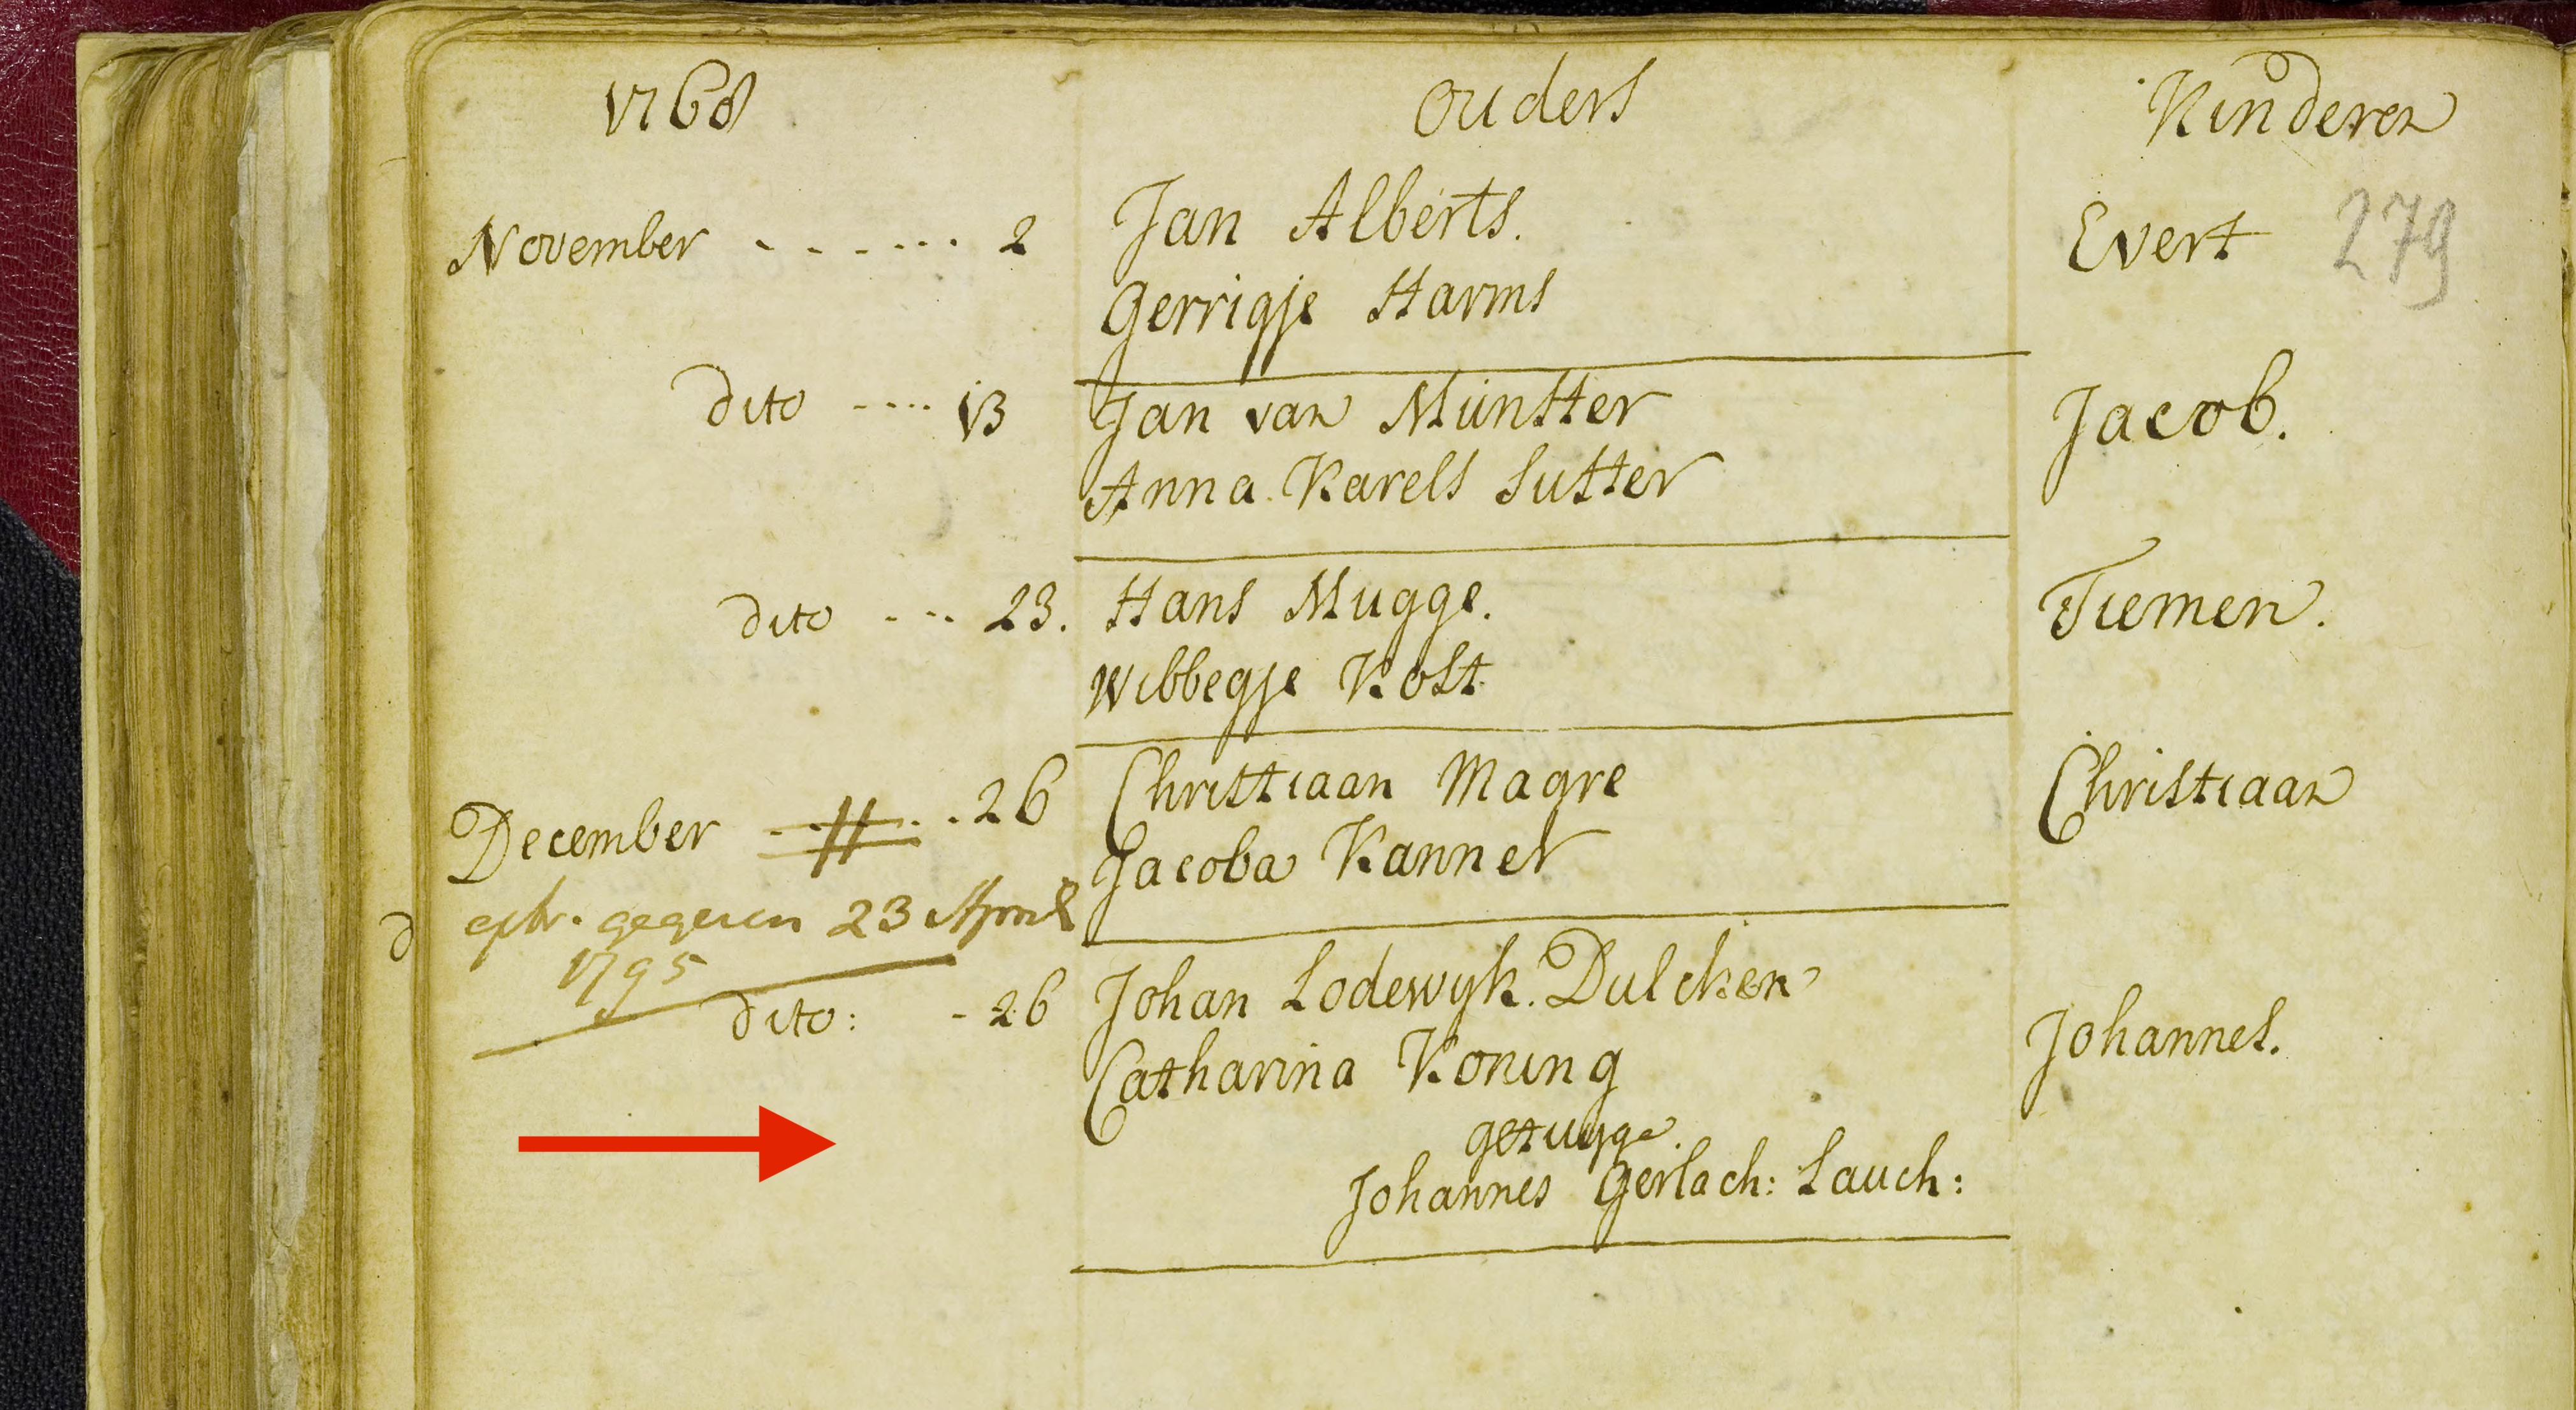 1768 ouders Kinderen
279
November - - - - - - - 2 Jan Alberts. Evert
Gerrigje Harms
dito - - - - 13 Jan van Munster Jacob.
Anna Karels Sutter
dito - - - 23. Hans Mugge. Tiemen.
Wibbegje Kost
December - - - - 26 Christiaan Magre Christiaan
Jacoba Kanner
gegeven 23 April
1795
d
dito: - 26 Johan Lodewyk Dulcken Johannes.
Catharina Koning
getuyge.
Johannes Gerlach: Lauch: